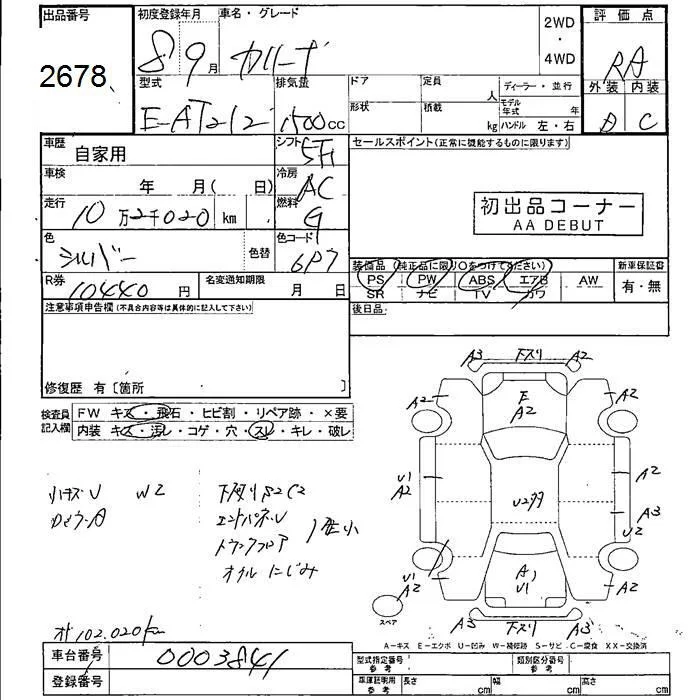 出品番号 初度登録年月 車名・グレード 2WD・4WD 評価点
2678 8 9月 カリーナ RA
型式 排気量 ドア 定員 人 ディーラー・並行 外装 内装
E-AT212 1500cc 形状 積載 kg モデル年式 年 ハンドル 左・右 C
車歴 自家用 シフト セールスポイント(正常に機能するものに限ります)
車検 年 月( 日) 冷房 AC
走行 10万2千020km 燃料 G
初出品コーナー
AA DEBUT
色 シルバー 色替 色コード 6P7
装備品(純正品に限り○をつけてください) 新車保証書
PS PW ABS エアB AW 有・無
SR ナビ TV カワ
R券 10440円 名変通知期限 月 日
後日品
注意事項申告欄(不具合内容等は具体的に記入して下さい)
修復歴 有〔箇所 〕
検査員記入欄 FW キズ・飛石・ヒビ割・リペア跡・×要
内装 キズ・汚レ・コゲ・穴・スレ・キレ・破レ
A3 下スリ A2
A2 E A2 A2
U1 A2 A2
A3
U2
U1 A2 A1 U1 A2
A3 下スリ A3
スペア
W2 下廻りS2C2
トランクフロア
オイルにじみ
小
102.020km
A-キズ E-エクボ U-凹み W-補修跡 S-サビ C-腐食 XX-交換済
車台番号 0003841
登録番号
型式指定番号 参考 類別区分番号 参考
車庫証明用 参考 長さ cm 幅 cm 高さ cm